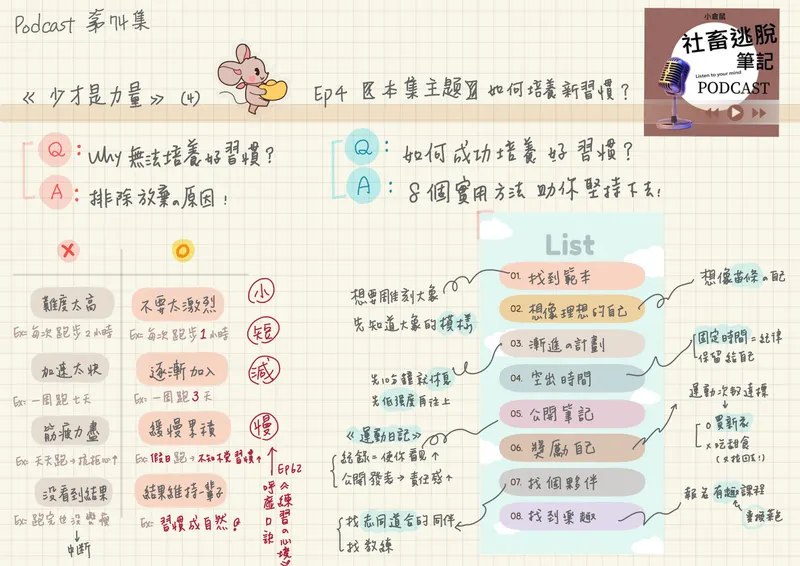 Podcast 第74集
小倉鼠
社畜逃脫
筆記
Listen to your mind
PODCAST
《 少才是力量 》 (4)
Ep4 【本集主題】如何培養新習慣?
Q: Why 無法培養好習慣?
A: 排除放棄の原因!
Q: 如何成功培養好習慣?
A: 8個實用方法 助你堅持下去!
X
O
難度太高
Ex: 每次跑步2小時
不要太激烈
Ex: 每次跑步1小時
小
加速太快
Ex: 一周跑七天
逐漸加入
Ex: 一周跑3天
短
減
筋疲力盡
Ex: 天天跑→抗拒心↑
緩慢累積
Ex: 假日跑→不知不覺習慣↑
慢
沒看到結果
Ex: 跑完也沒變瘦
中斷
結果維持一輩子
Ex: 習慣成自然!
呼應口訣
EP62
《練習の心境》
List
01. 找到範本
02. 想像理想的自己
03. 漸進の計劃
04. 空出時間
05. 公開筆記
06. 獎勵自己
07. 找個夥伴
08. 找到樂趣
想要雕刻大象
先知道大象的模樣
想像苗條の自己
先10分鐘就休息
先低強度再往上
固定時間=紀律
保留給自己
《運動日記》
紀錄=使你看見↑
公開發表→責任感↑
運動次數達標
O 買新衣
X 吃甜食
找志同道合的同伴
找教練
報名有趣課程